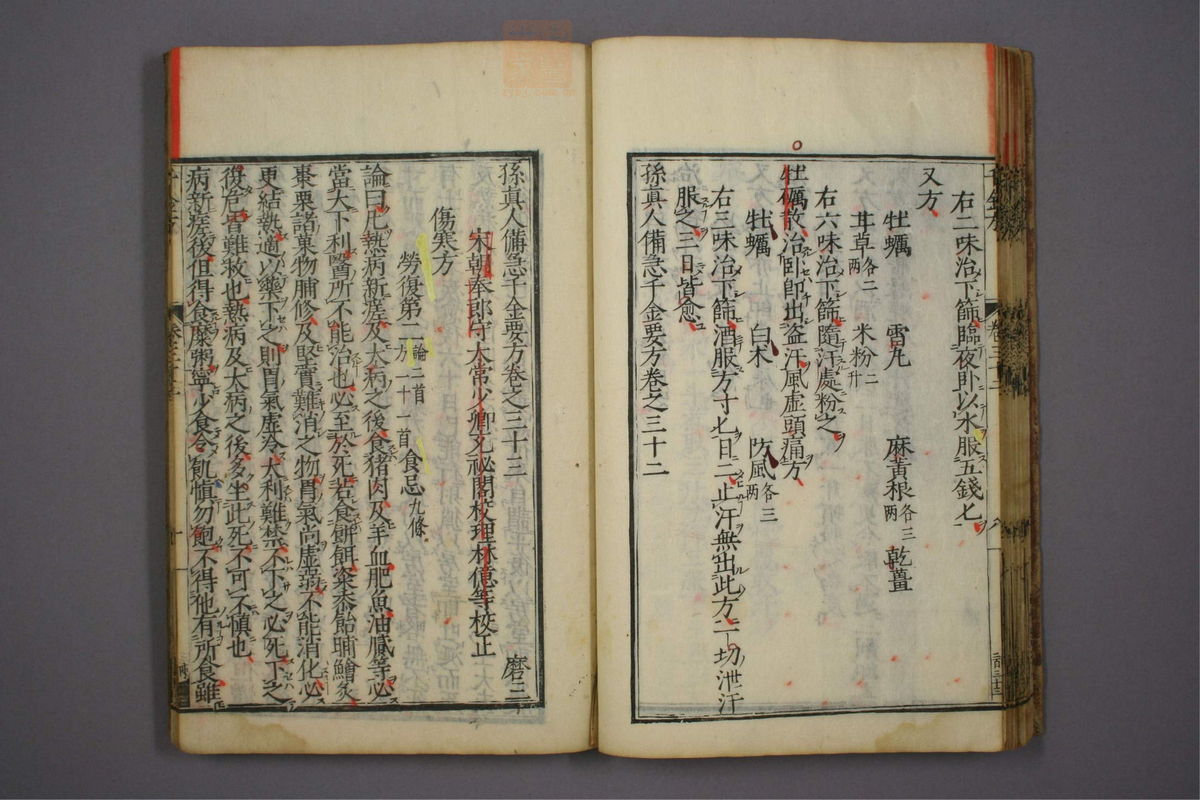 右二味治下篩臨夜卧以水服五錢匕
又方
牡蠣 雷丸 麻黄根各三两 乾薑
甘草各二两 米粉二升
右六味治下篩隨汗處粉之
牡蠣散治卧即出盗汗風虚頭痛方
牡蠣 白术 防風各三两
右三味治下篩酒服方寸匕日二止汗無出此方一切泄汗
服之三日皆愈
孫真人備急千金要方卷之三十二
孫真人備急千金要方卷之三十三 磨三
宋朝奉郎守太常少卿充祕閣校理林億等校正
傷寒方
勞復第二論二首方二十一首食忌九條
論曰凡熱病新瘥及大病之後食猪肉及羊血肥魚油膩等必
當大下利醫所不能治也必至於死若食餅餌粢黍飴餔鱠炙
棗栗諸菓物脯脩及堅實難消之物胃氣尚虚弱不能消化必
更結熱適以藥下之則胃氣虚冷大利難禁不下之必死下之
復危皆難救也熱病及大病之後多坐此死不可不慎也
病新瘥後但得食糜粥寧少食令飢慎勿飽不得他有所食雖